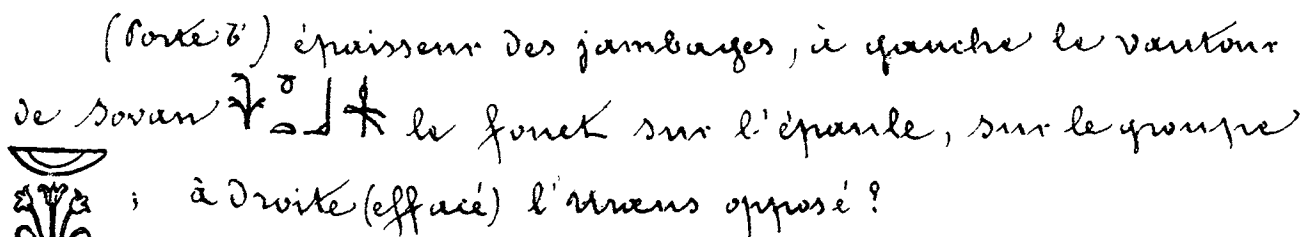 (Porte b') épaisseur des jambages, à gauche le vautour
de Sovan le fouet sur l'épaule, sur le groupe
; à droite (effacé) l'uræus opposé?